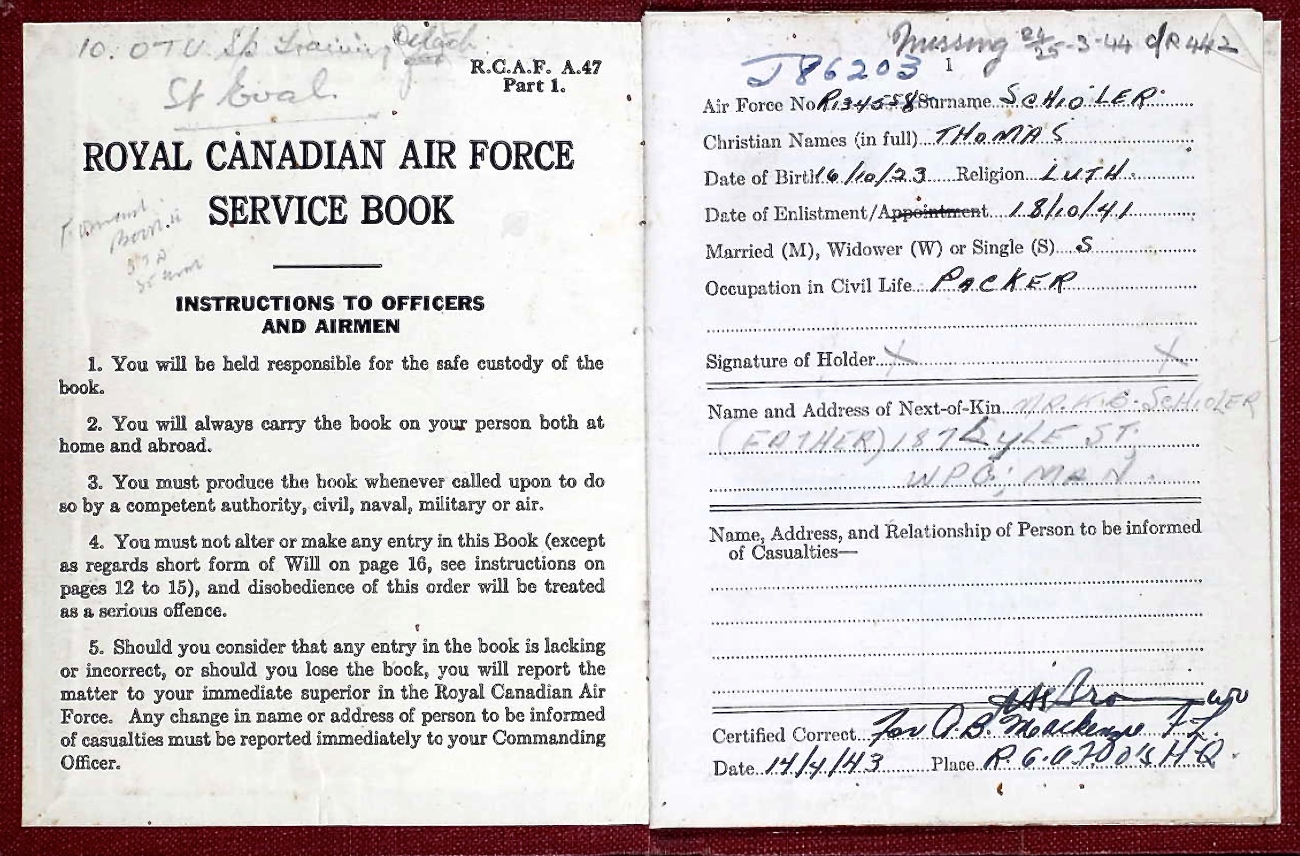 10. OTU. Sp Training Detach
St Eval.
R.C.A.F. A.47
Part 1.
ROYAL CANADIAN AIR FORCE
SERVICE BOOK
INSTRUCTIONS TO OFFICERS
AND AIRMEN
1. You will be held responsible for the safe custody of the
book.
2. You will always carry the book on your person both at
home and abroad.
3. You must produce the book whenever called upon to do
so by a competent authority, civil, naval, military or air.
4. You must not alter or make any entry in this Book (except
as regards short form of Will on page 16, see instructions on
pages 12 to 15), and disobedience of this order will be treated
as a serious offence.
5. Should you consider that any entry in the book is lacking
or incorrect, or should you lose the book, you will report the
matter to your immediate superior in the Royal Canadian Air
Force. Any change in name or address of person to be informed
of casualties must be reported immediately to your Commanding
Officer.
Missing 24/25-3-44 442
J86203 1
Air Force No R.134558 Surname SCHIOLER.
Christian Names (in full) THOMAS
Date of Birth 16/10/23 Religion LUTH.
Date of Enlistment/Appointment 18/10/41
Married (M), Widower (W) or Single (S) S
Occupation in Civil Life PACKER
Signature of Holder X X
Name and Address of Next-of-Kin MR. K. E. SCHIOLER
(FATHER) 187 LYLE ST.
WPG; MAN.
Name, Address, and Relationship of Person to be informed
of Casualties—
Certified Correct For A.B. Mackenzie F.L.
Date 14/4/43 Place R.C.A.F. O'S H.Q.